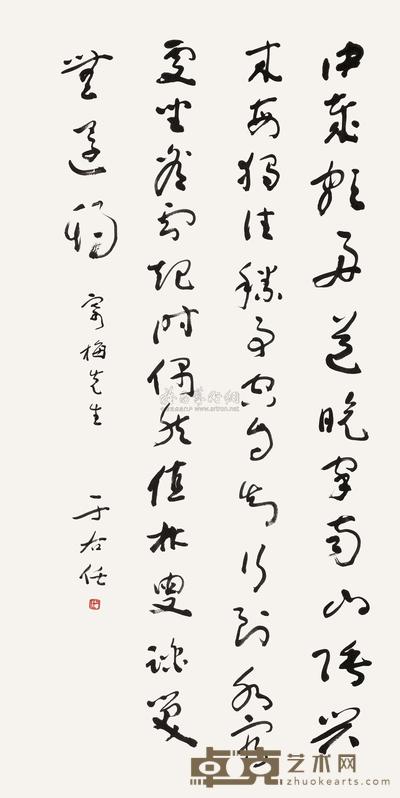 中歲頗好道晚家南山陲興
來每獨往勝事空自知行到水窮
處坐看雲起時偶然值林叟談笑
無還期
寄梅先生
于右任
www.artron.net
卓克艺术网
zhuokearts.com